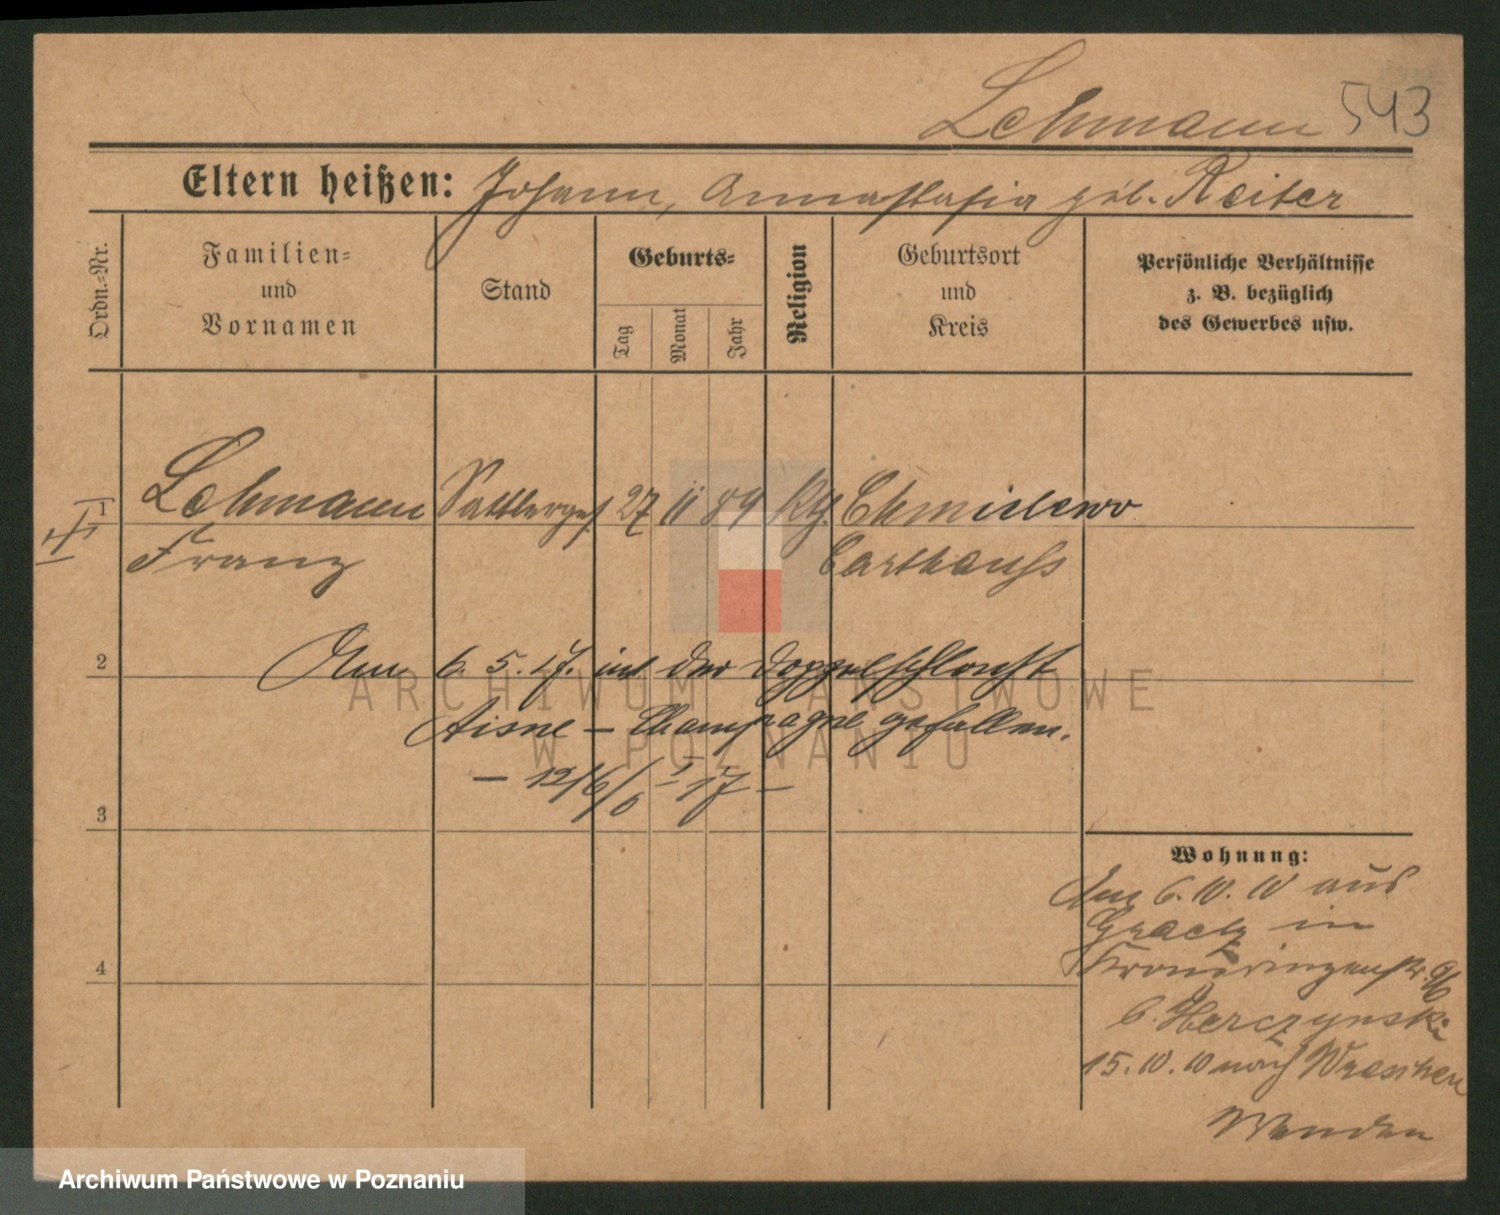 Lehmann 543
Eltern heißen: Johann, Annastasia geb. Reiter
Ordn.-Nr.
Familien-
und
Vornamen
Stand
Geburts-
Tag
Monat
Jahr
Religion
Geburtsort
und
Kreis
Persönliche Verhältnisse
z. B. bezüglich
des Gewerbes usw.
1 Lehmann Sattlerges. 27 11 89 kth. Chmielewo
Franz Carthauss
2 Am 6. 5. 17. in der Doppelschlacht
Aisne – Champagne gefallen.
3
Wohnung:
Am 6. 10. 10 aus
Graetz in
Kronprinzenstr. 96
b. Herczynski
4
15. 10. 10 nach Wreschen
Wenden
ARCHIWUM PAŃSTWOWE
W POZNANIU
Archiwum Państwowe w Poznaniu